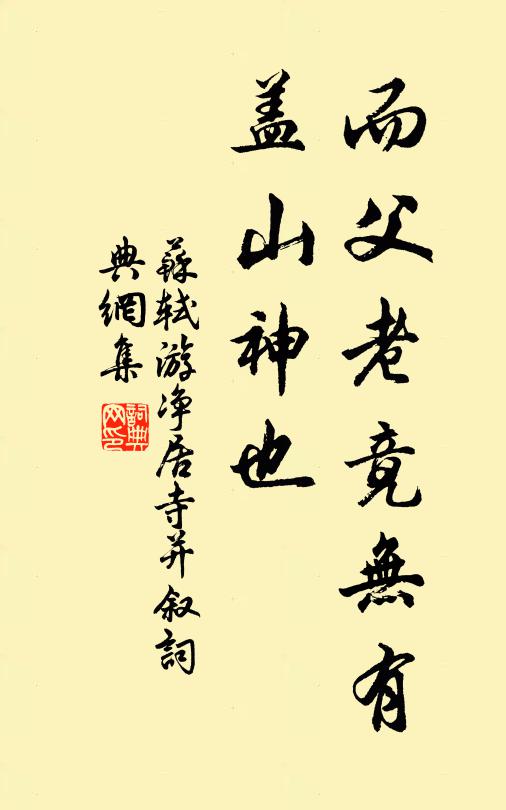 而父老竟無有
盖山神也
蘇軾游净居寺并叙詞
典網集
詞典網印